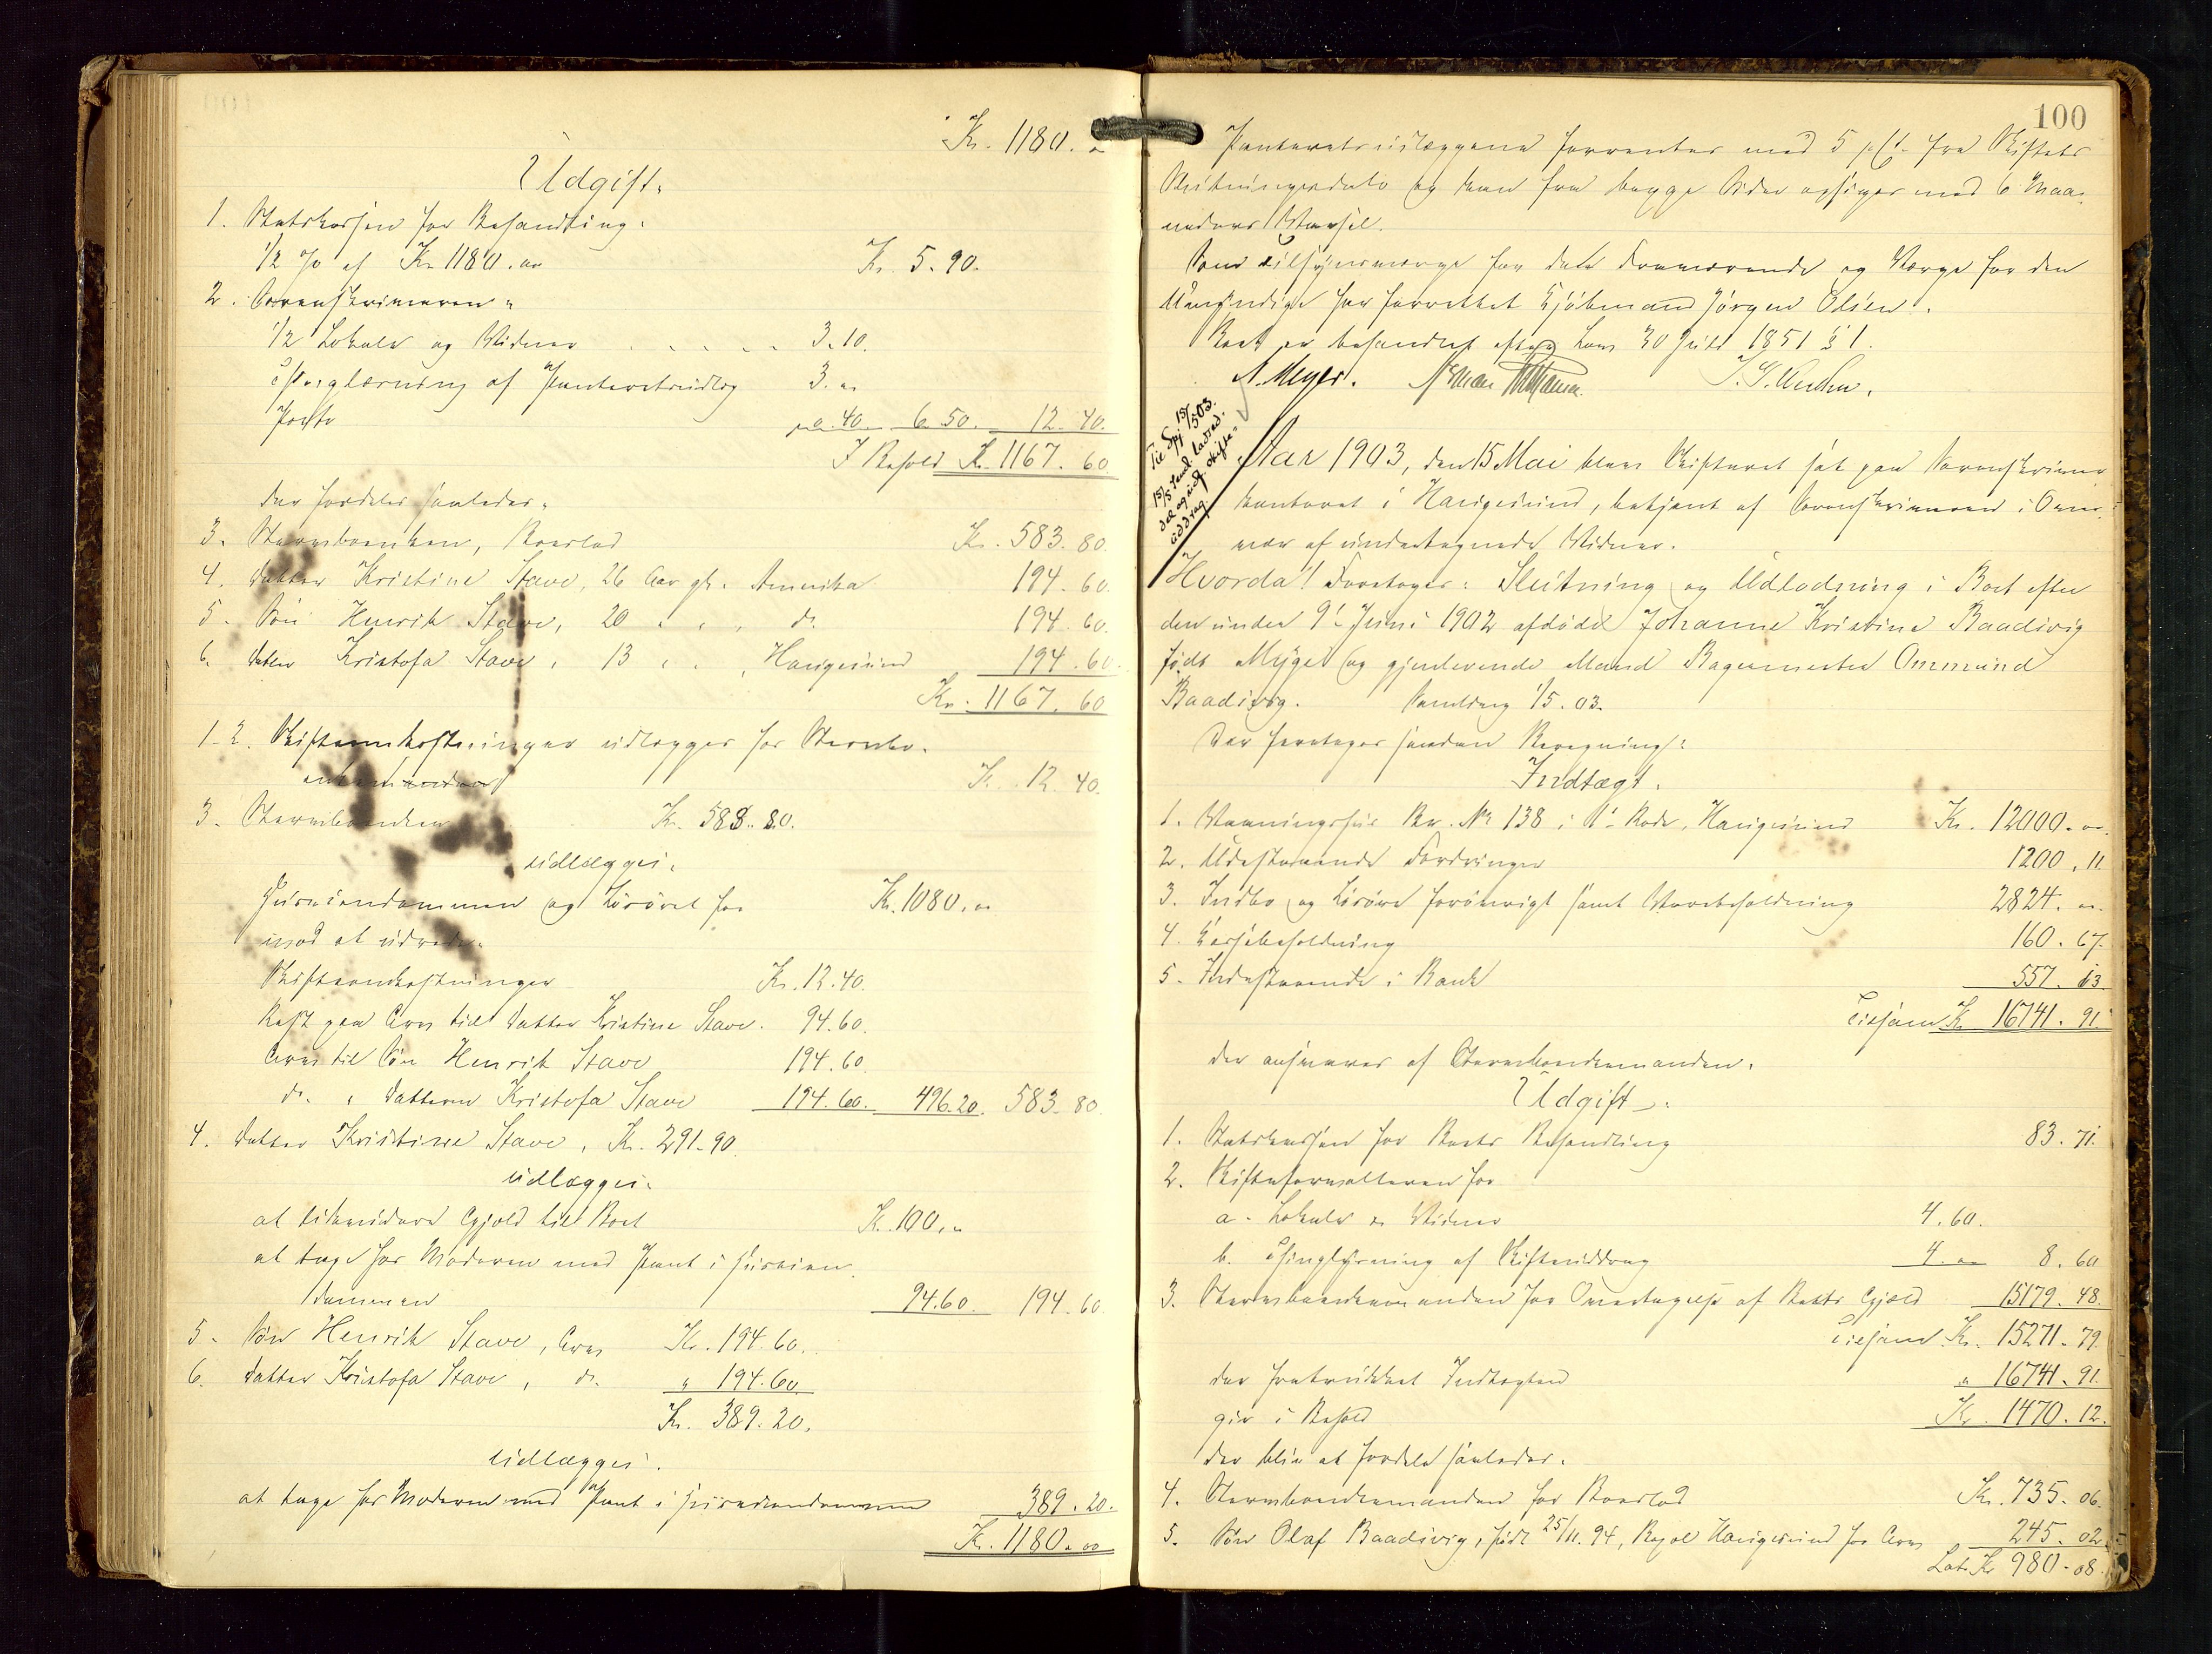 Kr. 1180. "
Udgift.
1. Statskassen for Behandling.
1/2 % af Kr 1180. oo Kr. 5. 90.
2. Sorenskriveren "
1/2 Lokale og Vidner 3. 10.
Thinglæsning af Panteretsudlæg 3. "
Porto 0. 40. 6. 50. 12. 40.
I Behold Kr. 1167. 60
der fordeles saaledes.
3. Stervboenken, Boeslod Kr. 583. 80.
4. Datter Kristine Stave, 26 Aar gl. Amerika 194. 60.
5. Søn Henrik Stave, 20 " " " do. 194. 60.
6. Datter Kristofa Stave, 13 " " , Haugesund 194. 60.
Kr. 1167. 60
1-2. Skifteomkostninger udlægges hos Stervbo-
Kr. 12. 40.
3. Stervboenken Kr. 583. 80.
udlægges.
Huseiendommen og Løsøret for Kr. 1080. oo
imod at udrede.
Skifteomkostninger Kr. 12. 40.
Rest paa Arv til Datter Kristine Stave. 94. 60.
Arv til Søn Henrik Stave 194. 60.
do. " Datteren Kristofa Stave 194. 60. 496. 20. 583. 80.
4. Datter Kristine Stave, Kr. 291. 90.
udlægges.
at likvidere Gjæld til Boet Kr. 100. "
at tage hos Moderen med Pant i Huseien-
dommen 94. 60. 194. 60.
5. Søn Henrik Stave, Arv Kr. 194. 60.
6. Datter Kristofa Stave, do. " 194. 60
Kr. 389. 20.
udlægges.
at tage hos Moderen med Pant i Huseiendommen 389. 20.
Kr. 1180. oo
100
Panteretsudlæggene forrentes med 5 p.Ct. fra Skiftets
Slutningsdato og kan fra begge Sider opsiges med 6 Maa-
neders Varsel.
Som Tilsynsværge for de Fraværende og Værge for den
Umyndige har forrettet Kjøbmand Jørgen Olsen.
Boet er behandlet efter Lov 30 Juli 1851 § 1.
A. Meyer.
15/5 1903.
Aar 1903, den 15 Mai blev Skifteret sat paa Sorenskriver-
kontoret i Haugesund, betjent af Sorenskriveren i Over-
vær af undertegnede Vidner.
Hvorda! Foretoges: Slutning og Udlodning i Boet efter
den under 9de Juni 1902 afdøde Johanne Kristine Baadsvig
født Myge og gjenlevende Mand Bagermester Ommund
Baadsvig. Samling 1/5. 03.
Der foretoges saadan Beregning:
Indtægt.
1. Vaaningshus Br. No 138 i 1ste Rode, Haugesund Kr. 12000. oo
2. Udestaaende Fordringer 1200. 11
3. Indbo og Løsøre forøvrigt samt Varebeholdning 2824. oo
4. Kassebeholdning 160. 67.
5. Indestaaende i Bank 557. 13
Tilsam Kr. 16741. 91.
der ansvares af Stervboenkemanden.
Udgift.
1. Statskassen for Boets Behandling 83. 71.
2. Skifteforvalteren for
a. Lokale & Vidner 4. 60.
b. Thinglysning af Skifteuddrag 4. oo 8. 60
3. Stervboenkemanden for Overtagelse af Boets Gjæld 15179. 48.
Tilsam Kr. 15271. 79.
der fratrukket Indtægten " 16741. 91.
gir i Behold Kr. 1470. 12.
der blir at fordele saaledes.
4. Stervboenkemanden for Boeslod Kr. 735. 06.
5. Søn Olaf Baadsvig, født 25/11. 94, Bopæl Haugesund for Arv 245. 02
Lat. Kr 980. 08.